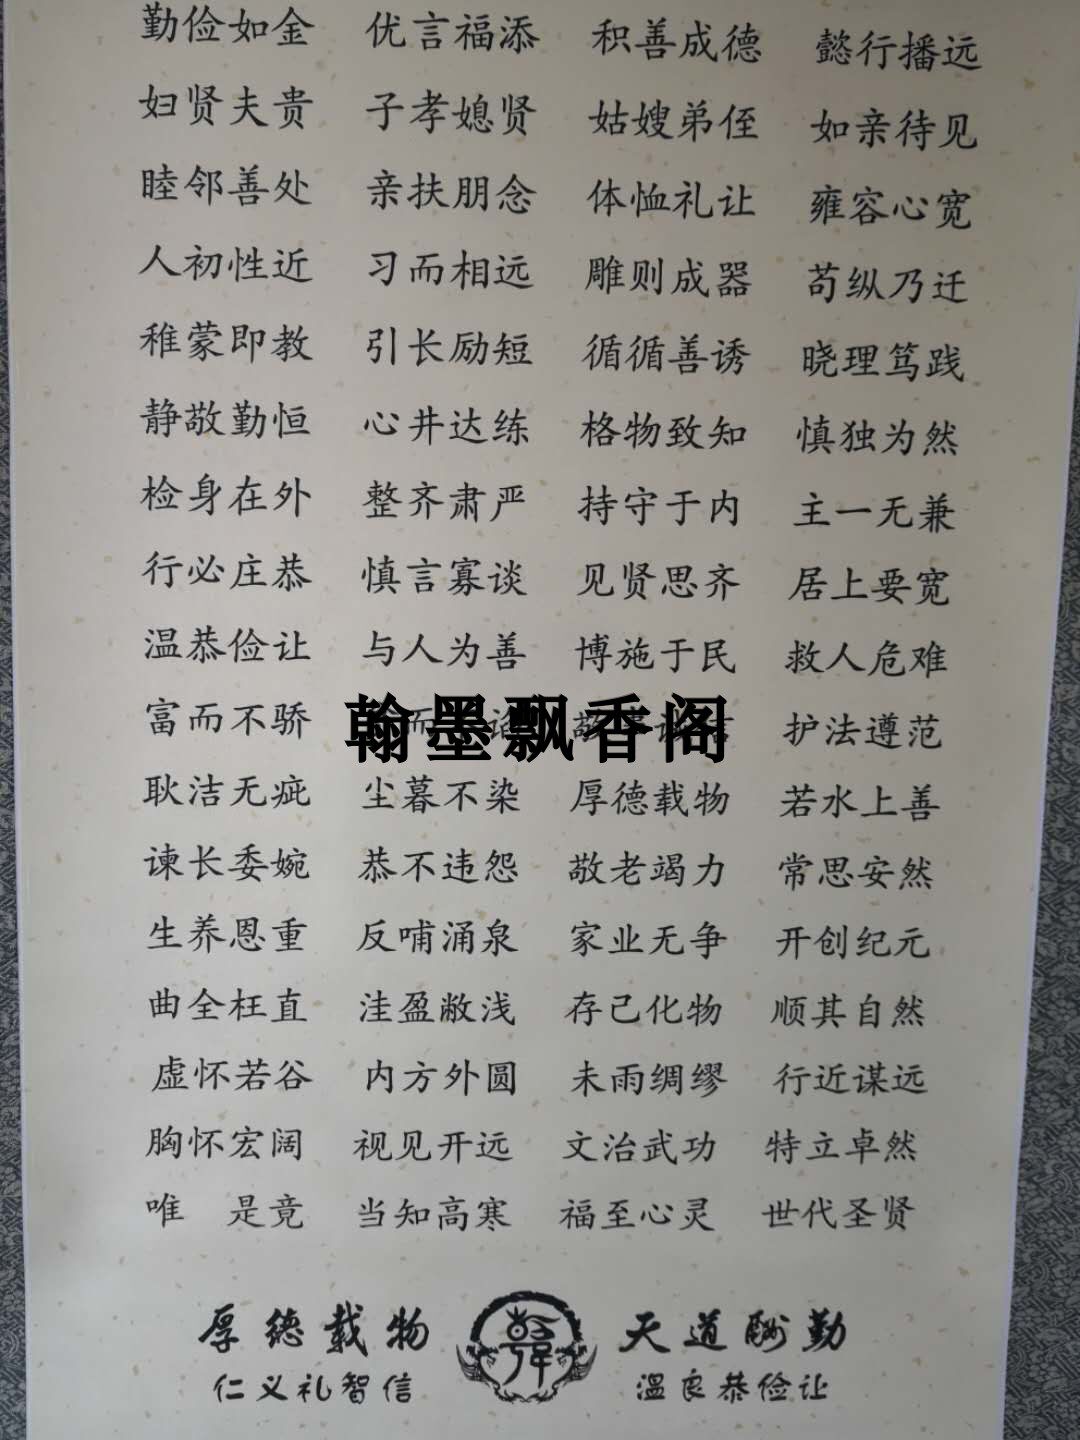 勤俭如金 优言福添 积善成德 懿行播远
妇贤夫贵 子孝媳贤 姑嫂弟侄 如亲待见
睦邻善处 亲扶朋念 体恤礼让 雍容心宽
人初性近 习而相远 雕则成器 苟纵乃迁
稚蒙即教 引长励短 循循善诱 晓理笃践
静敬勤恒 心井达练 格物致知 慎独为然
检身在外 整齐肃严 持守于内 主一无兼
行必庄恭 慎言寡谈 见贤思齐 居上要宽
温恭俭让 与人为善 博施于民 救人危难
富而不骄 而 谄 敬 护法遵范
翰墨飘香阁
耿洁无疵 尘暮不染 厚德载物 若水上善
谏长委婉 恭不违怨 敬老竭力 常思安然
生养恩重 反哺涌泉 家业无争 开创纪元
曲全枉直 洼盈敝浅 存己化物 顺其自然
虚怀若谷 内方外圆 未雨绸缪 行近谋远
胸怀宏阔 视见开远 文治武功 特立卓然
唯 是竟 当知高寒 福至心灵 世代圣贤
厚德载物 天道酬勤
仁义礼智信 温良恭俭让